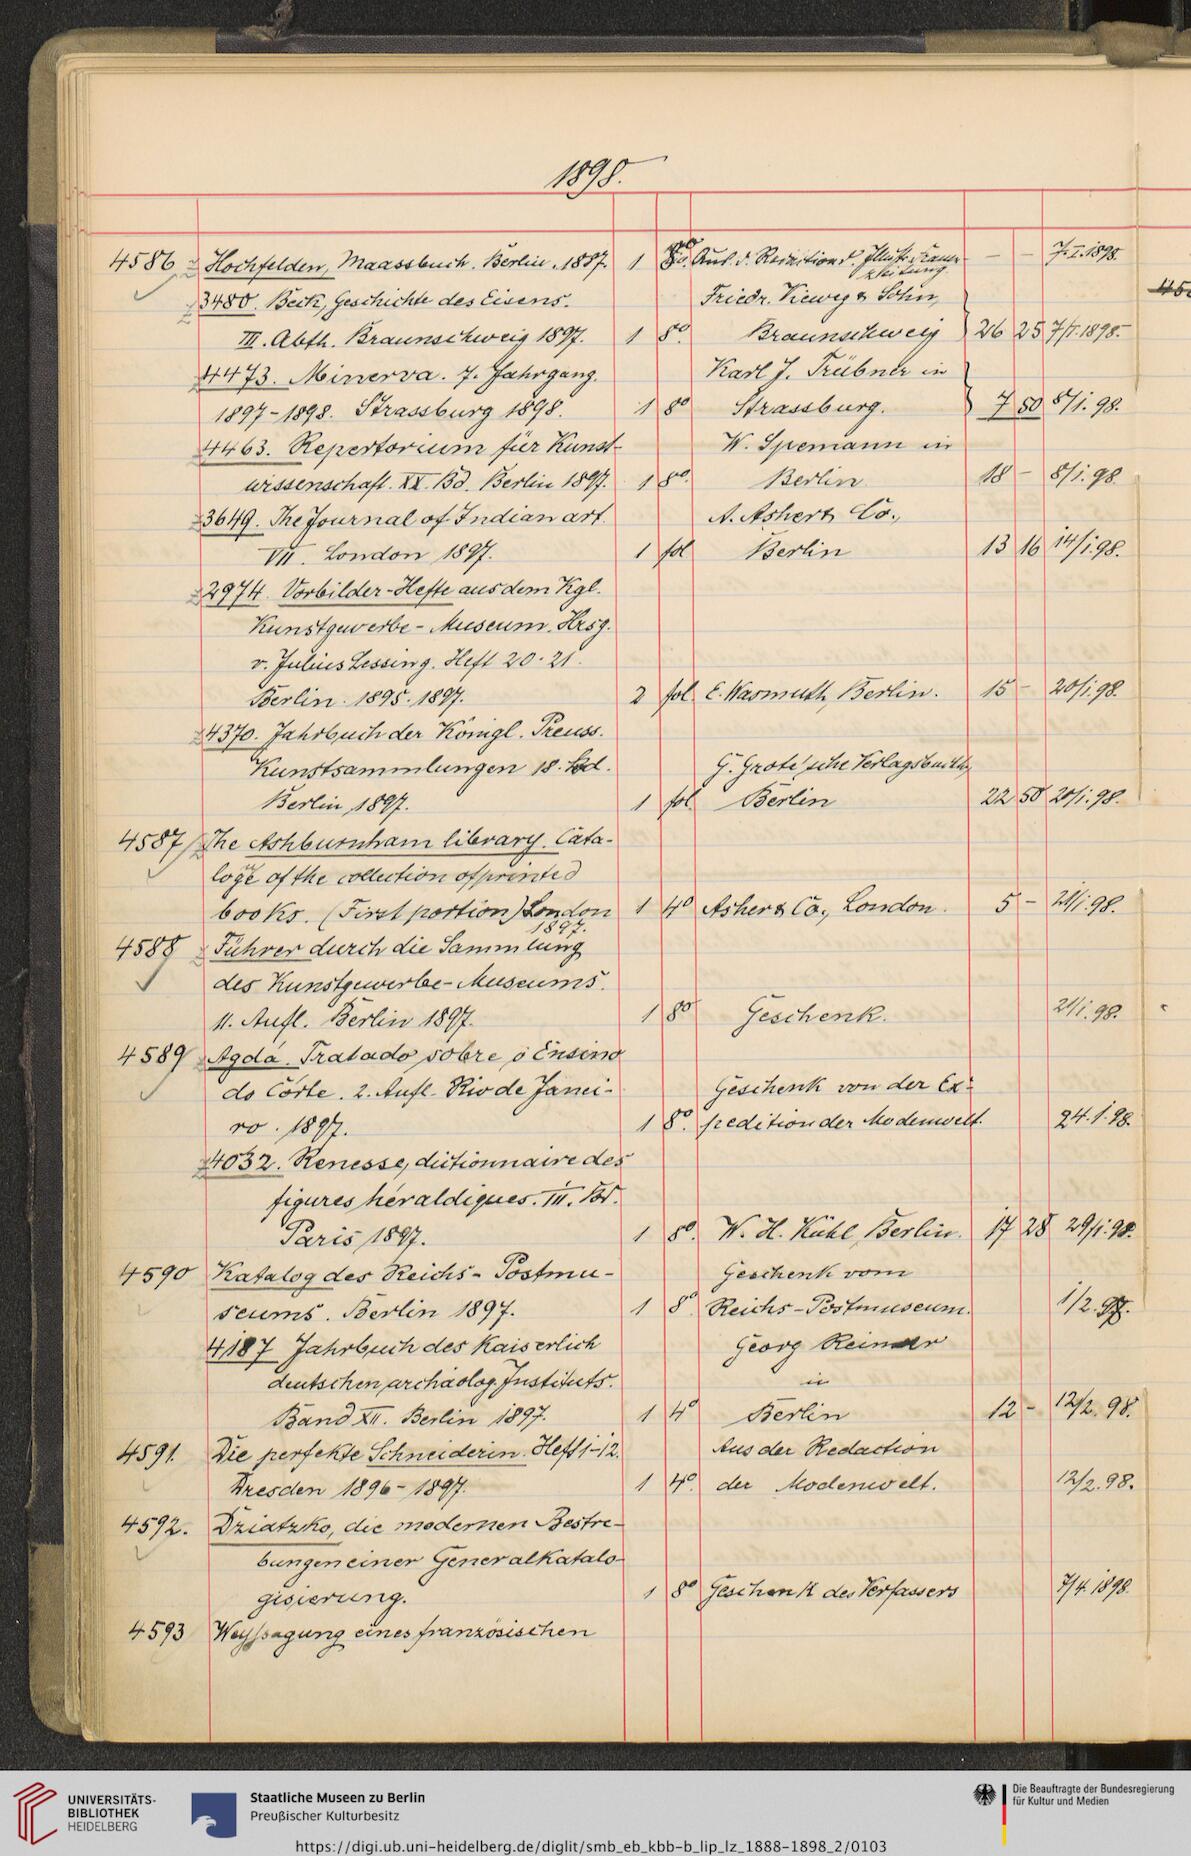 1898.
4586 Hochfelden, Maassbuch. Berlin. 1887. 1 8o. Aus d. Redaction d. Illustr. Frauen- — — 7.I.1898.
zeitung
3480. Beck, Geschichte des Eisens. Friedr. Vieweg & Sohn,
III. Abth. Braunschweig 1897. 1 8o. Braunschweig 26 25 7/I.1898.
4473. Minerva. 7. Jahrgang. Karl J. Trübner in
1897-1898. Strassburg 1898. 1 8o Strassburg. 7 80 8/1. 98.
4463. Repertorium für Kunst- W. Spemann in
wissenschaft. XX. Bd. Berlin 1897. 1 8o. Berlin 18 — 8/1. 98.
3649. The Journal of Indian art. A. Asher & Co.,
VII. London 1897. 1 fol. Berlin 13 16 14/1. 98.
2974. Vorbilder-Hefte aus dem Kgl.
Kunstgewerbe-Museum. Hrsg.
v. Julius Lessing. Heft 20. 21.
Berlin. 1895. 1897. 2 fol. E. Wasmuth, Berlin. 15 — 20/1. 98.
4370. Jahrbuch der Königl. Preuss.
Kunstsammlungen 18. Bd. G. Grote'sche Verlagsbuchh,
Berlin 1897. 1 fol. Berlin 22 50 20/1. 98.
4587 The Ashburnham library. Cata-
loge of the collection of printed
books. (First portion) London 1 4o Asher & Co., London. 5 — 21/1. 98.
1897.
4588 Führer durch die Sammlung
des Kunstgewerbe-Museums.
11. Aufl. Berlin 1897. 1 8o Geschenk. 21/1. 98.
4589 Agdá. Tratado sobre o Ensino
do Córte. 2. Aufl. Rio de Janei- Geschenk von der Ex-
ro. 1897. 1 8o. pedition der Modenwelt. 24. 1. 98.
4032. Renesse, dictionnaire des
figures héraldiques. III. Bd.
Paris 1897. 1 8o. W. H. Kühl, Berlin. 17 28 29/1. 98.
4590 Katalog des Reichs-Postmu- Geschenk vom
seums. Berlin 1897. 1 8o Reichs-Postmuseum. 1/2. 98.
4187 Jahrbuch des Kaiserlich Georg Reimer
deutschen archäolog. Instituts. in
Band XII. Berlin 1897. 1 4o Berlin 12 — 12/2. 98.
4591. Die perfekte Schneiderin. Heft 1-12. Aus der Redaction
Dresden 1896-1897. 1 4o. der Modenwelt. 12/2. 98.
4592. Dziatzko, die modernen Bestre-
bungen einer Generalkatalo-
gisierung. 1 8o Geschenk des Verfassers 7/4. 1898.
4593 Weyssagung eines französischen
UNIVERSITÄTS-
BIBLIOTHEK
HEIDELBERG
Staatliche Museen zu Berlin
Preußischer Kulturbesitz
Die Beauftragte der Bundesregierung
für Kultur und Medien
https://digi.ub.uni-heidelberg.de/diglit/smb_eb_kbb-b_lip_lz_1888-1898_2/0103